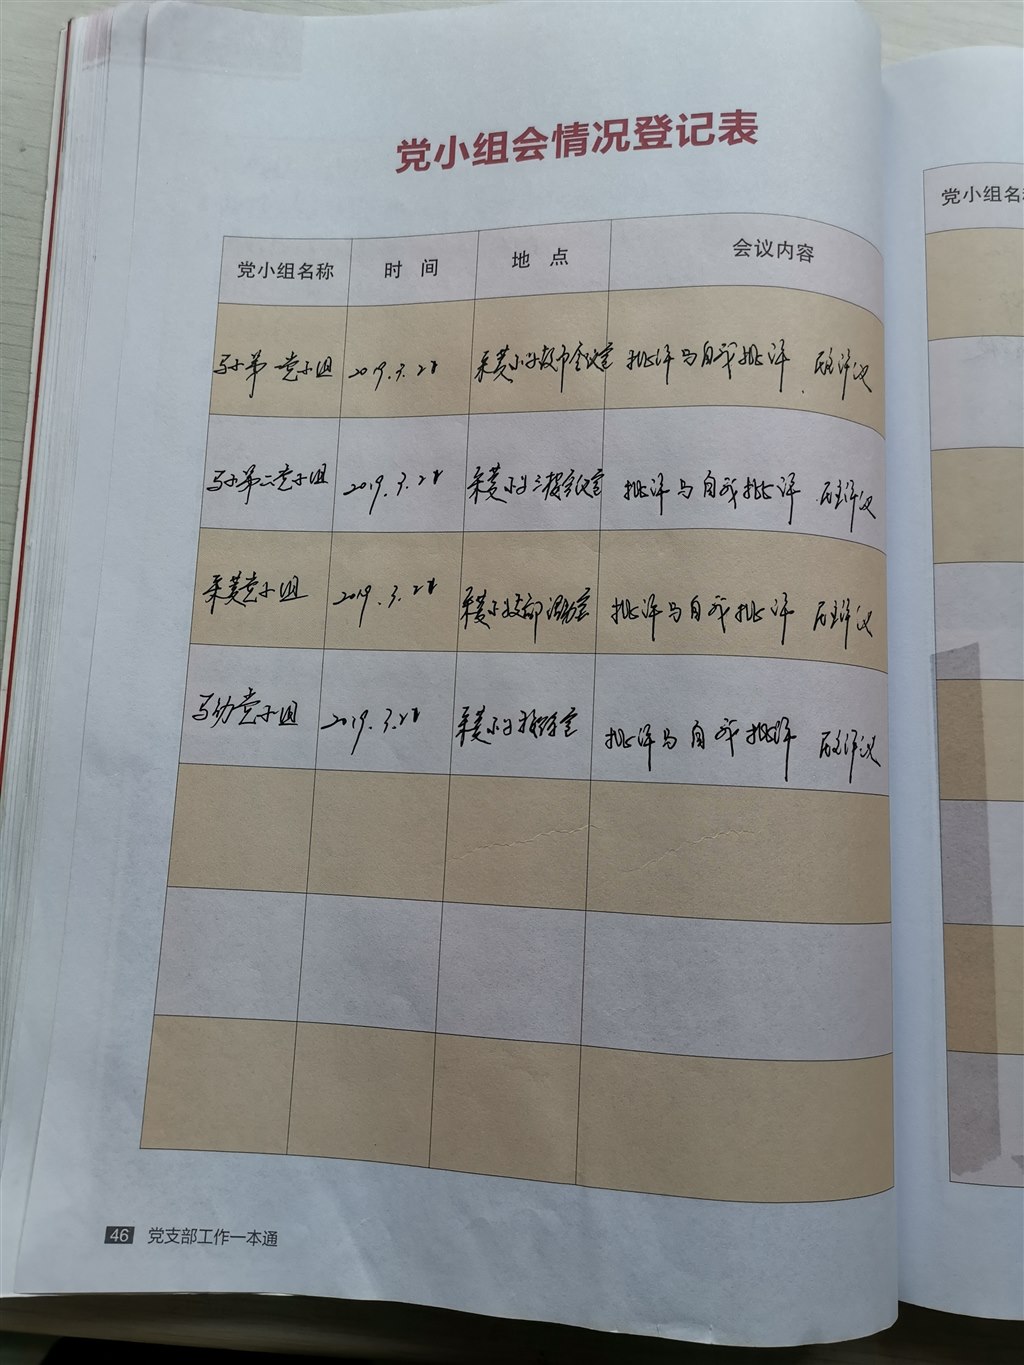 党小组会情况登记表
党小组名称 时 间 地 点 会议内容
马小第一党小组 2019.3.28 采菱小学 会议室 批评与自我批评 民主评议
马小第二党小组 2019.3.28 采菱小学三楼会议室 批评与自我批评 民主评议
采菱党小组 2019.3.28 采菱小学支部活动室 批评与自我批评 民主评议
马幼党小组 2019.3.28 采菱小学 室 批评与自我批评 民主评议
46 党支部工作一本通
党小组名